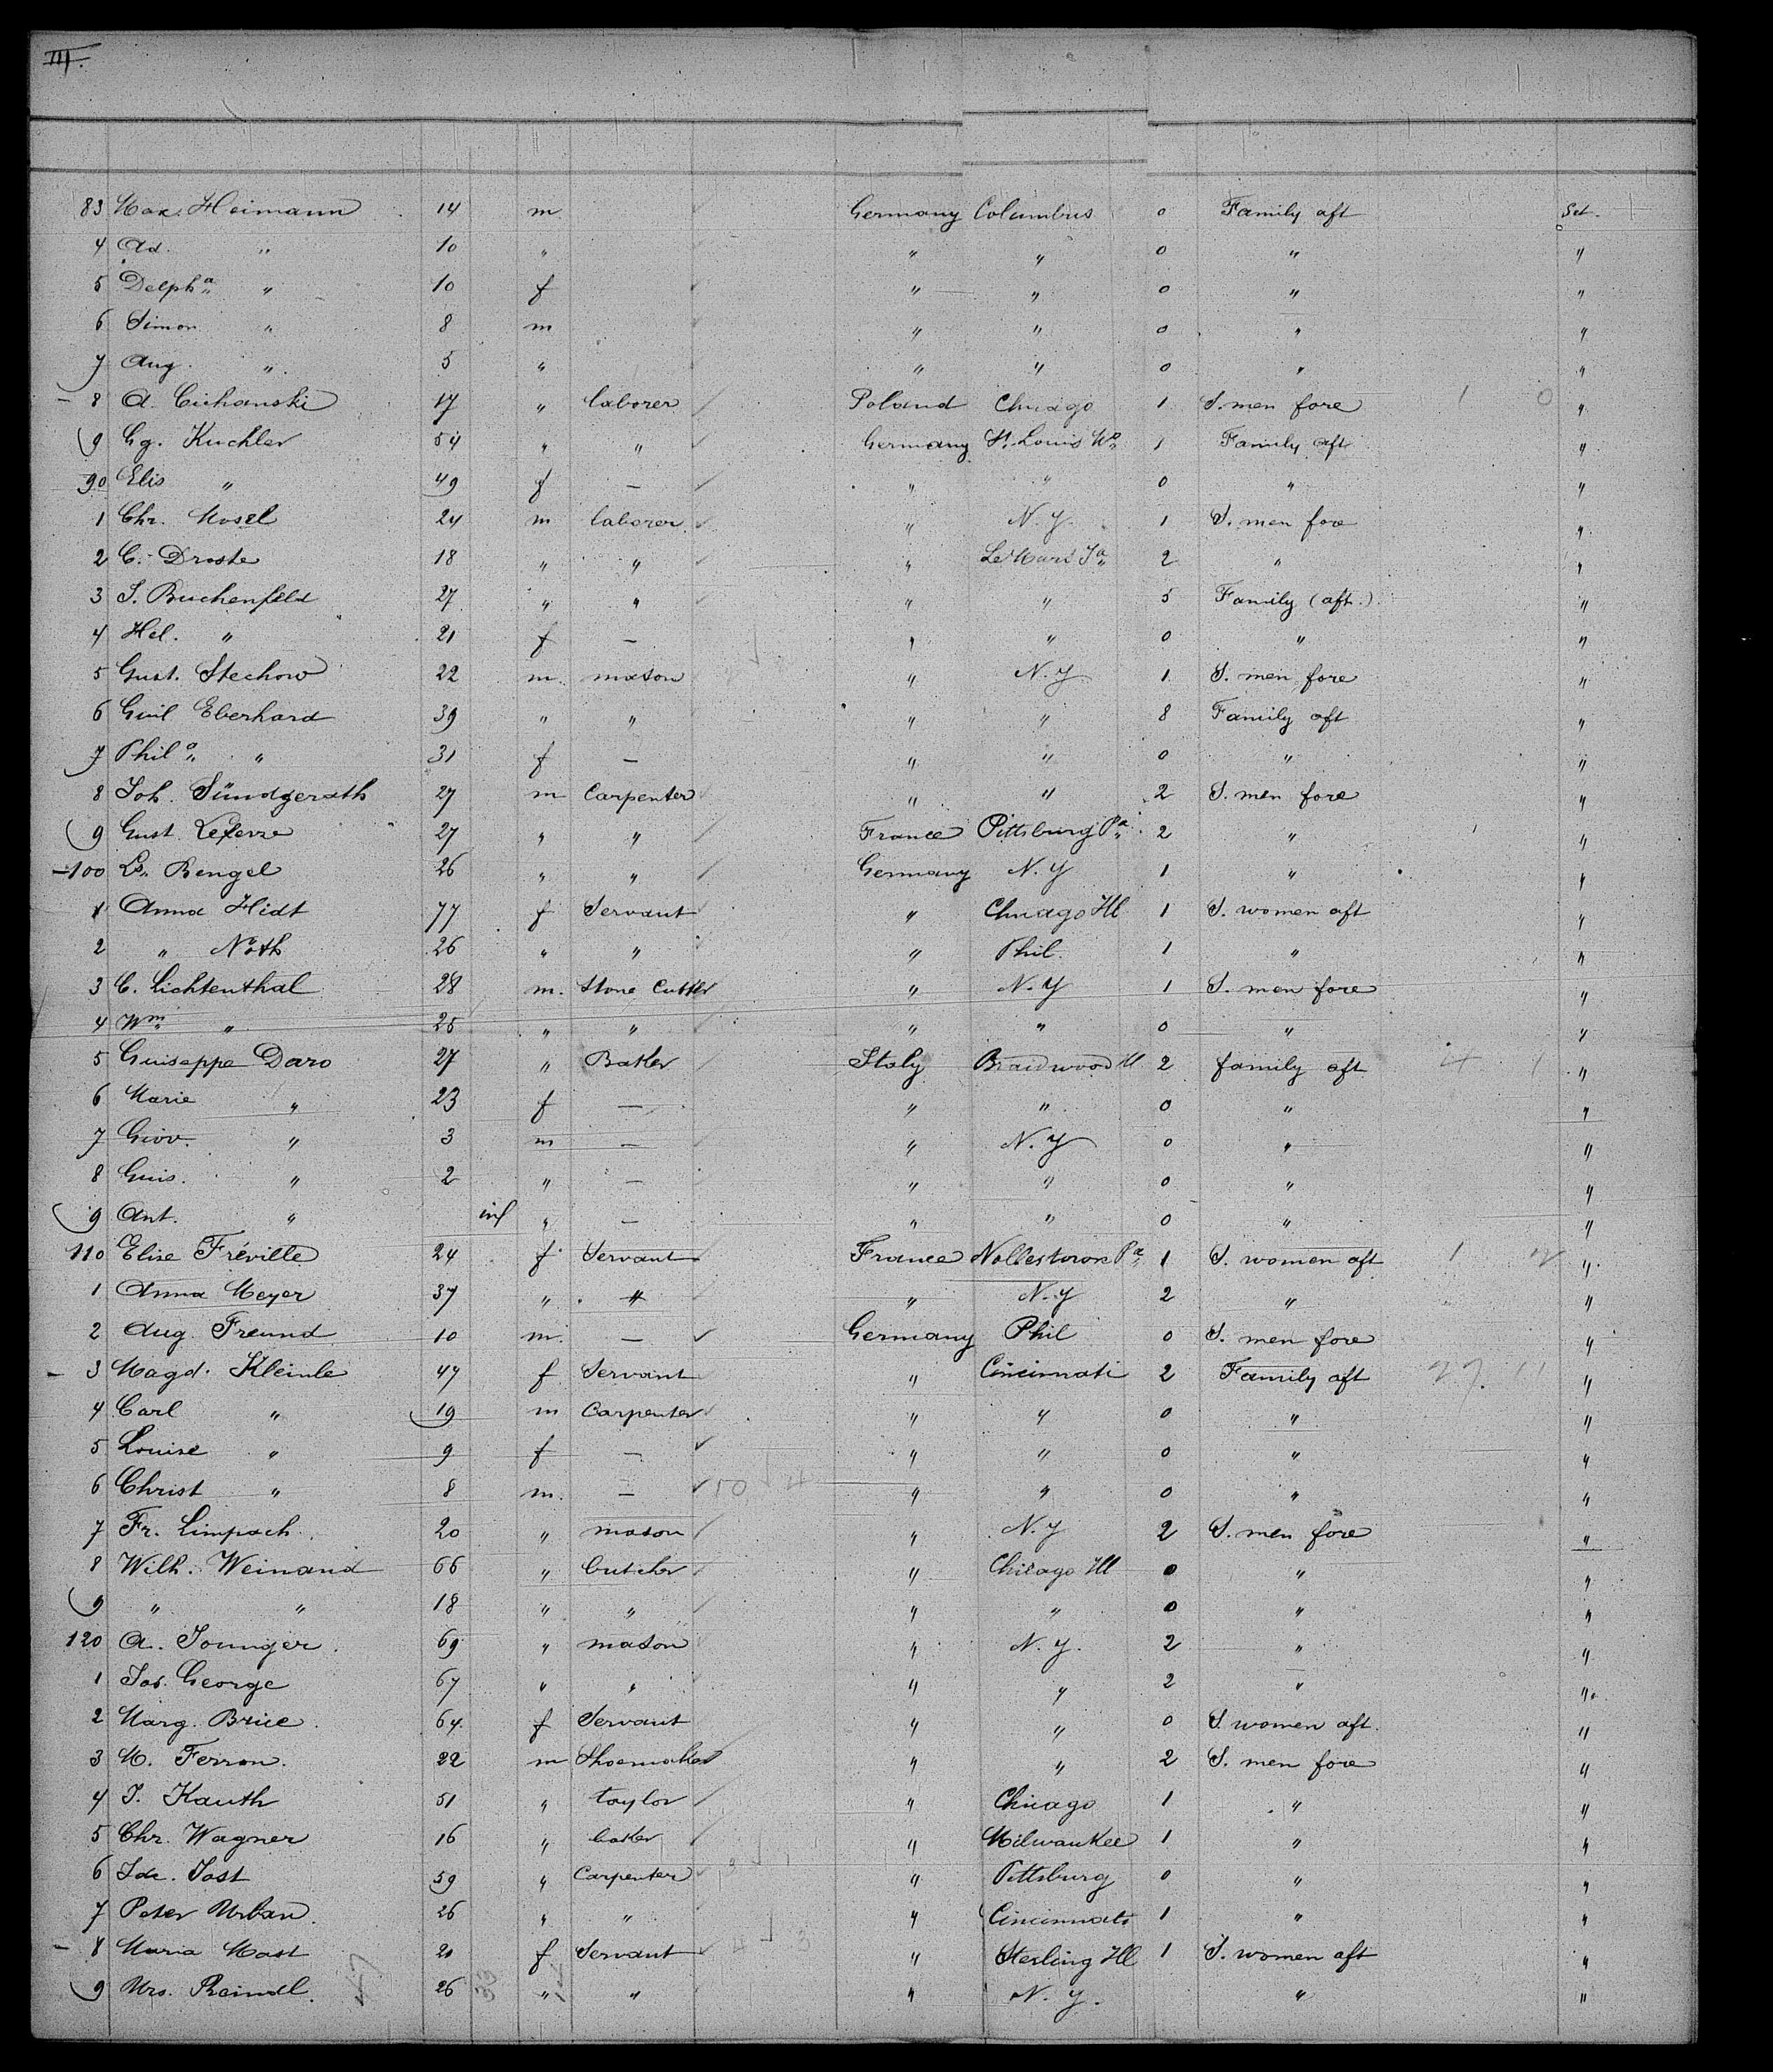 III.
83 Max. Heimann 14 m Germany Columbus 0 Family aft Set.
4 Ad. " 10 " " " 0 " "
5 Delpha " 10 f " " 0 " "
6 Simon " 8 m " " 0 " "
7 Aug. " 5 " " " 0 " "
8 A. Cichanski 17 " laborer Poland Chicago 1 S. men fore 1 0 "
9 Gg. Kuchler 54 " " Germany St. Louis Mo 1 Family aft "
90 Elis " 49 f — " " 0 " "
1 Chr. Mosel 24 m laborer " N.Y. 1 S. men fore "
2 C. Droste 18 " " " Le Mars Ia 2 " "
3 J. Buchenfeld 27 " " " " 5 Family (aft.) "
4 Hel. " 21 f — " " 0 " "
5 Gust. Stechow 22 m mason " N.Y. 1 S. men fore "
6 Guil Eberhard 39 " " " " 8 Family aft "
7 Phila " 31 f — " " 0 " "
8 Joh. Sündgerath 27 m Carpenter " " 2 S. men fore "
9 Gust. Lefevre 27 " " France Pittsburg Pa 2 " "
100 Ls. Bengel 26 " " Germany N.Y 1 " "
1 Anna Hidt 77 f Servant " Chicago Ill 1 S. women aft "
2 " Noth 26 " " " Phil. 1 " "
3 C. Lichtenthal 28 m. Stone Cutter " N.Y 1 S. men fore "
4 Wm " 25 " " " " 0 " "
5 Guiseppe Daro 27 " Baker Italy Braidwood Ill 2 family aft 4 1 "
6 Marie " 23 f — " " 0 " "
7 Giov. " 3 m — " N.Y 0 " "
8 Guis. " 2 " — " " 0 " "
9 Ant. " inf " — " " 0 " "
110 Elise Fréville 24 f Servant France Noblestown Pa 1 S. women aft 1 "
1 Anna Meyer 37 " " " N.Y 2 " "
2 Aug. Freund 10 m. — Germany Phil 0 S. men fore "
3 Magd. Kleinle 47 f Servant " Cincinnati 2 Family aft 27. 11 "
4 Carl " 19 m Carpenter " " 0 " "
5 Louise " 9 f — " " 0 " "
6 Christ " 8 m. — " " 0 " "
7 Fr. Limpach 20 " mason " N.Y 2 S. men fore "
8 Wilh. Weinand 66 " butcher " Chicago Ill 0 " "
9 " " 18 " " " " 0 " "
120 A. Jounger 69 " mason " N.Y. 2 " "
1 Jos. George 67 " " " " 2 " "
2 Marg. Brüe 64 f Servant " " 0 S. women aft. "
3 M. Ferron. 22 m Shoemaker " " 2 S. men fore "
4 J. Kauth 51 " taylor " Chicago 1 " "
5 Chr. Wagner 16 " baker " Milwaukee 1 " "
6 Jac. Jost 59 " Carpenter " Pittsburg 0 " "
7 Peter Urban 26 " " " Cincinnati 1 " "
8 Maria Mast 20 f Servant 4 3 " Sterling Ill 1 S. women aft "
9 Mrs. Reindl. 26 " " " N.Y. " "